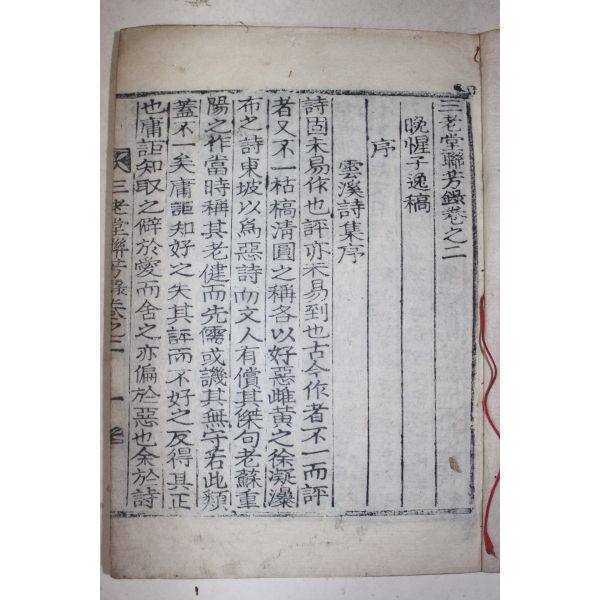 三老堂聯芳錄卷之二
晩惺子逸稿
序
雲溪詩集序
詩固未易作也評亦未易到也古今作者不一而評
者又不一枯槁清圓之稱各以好惡雌黃之徐凝瀑
布之詩東坡以爲惡詩而文人有償其傑句老蘇重
陽之作當時稱其老健而先儒或譏其無守若此類
蓋不一矣庸詎知好之失其評而不好之反得其正
也庸詎知取之僻於愛而舍之亦偏於惡也余於詩
三老堂聯芳錄卷之二 一